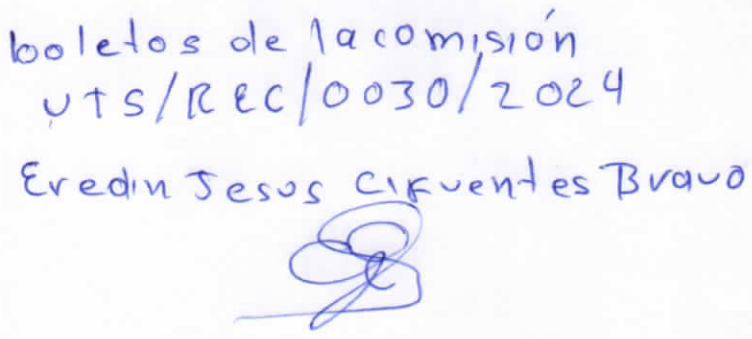 boletos de la comisión
UTS/REC/0030/2024
Eredin Jesus Cifuentes Bravo